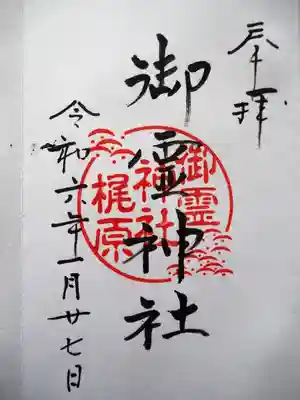 奉拝
御霊神社
梶原
神社
御霊
令和六年一月廿七日